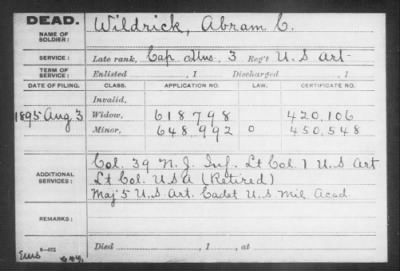 DEAD.
NAME OF SOLDIER: Wildrick, Abram C.
SERVICE: Late rank, Cap Uns. 3 Reg't U.S Art
TERM OF SERVICE: Enlisted , 1 Discharged , 1
DATE OF FILING. CLASS. APPLICATION NO. LAW. CERTIFICATE NO.
Invalid,
1895 Aug 3 Widow, 618,798 420,106
Minor, 648,992 0 450,548
ADDITIONAL SERVICES: Col. 39 N.J. Inf. Lt Col. 1 U.S Art
Lt Col. U S A (Retired)
Maj 5 U.S Art. Cadet U.S Mil Acad.
REMARKS:
Died , 1 , at